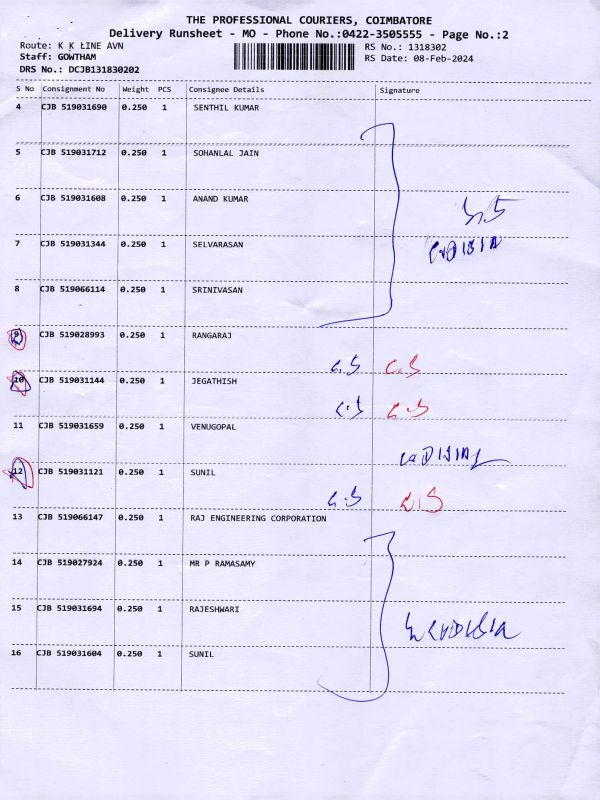 THE PROFESSIONAL COURIERS, COIMBATORE
Delivery Runsheet - MO - Phone No.:0422-3505555 - Page No.:2
Route: K K LINE AVN
RS No.: 1318302
Staff: GOWTHAM
RS Date: 08-Feb-2024
DRS No.: DCJB131830202
S No Consignment No Weight PCS Consignee Details Signature
4 CJB 519031690 0.250 1 SENTHIL KUMAR
5 CJB 519031712 0.250 1 SOHANLAL JAIN
6 CJB 519031608 0.250 1 ANAND KUMAR
7 CJB 519031344 0.250 1 SELVARASAN
8 CJB 519066114 0.250 1 SRINIVASAN
9 CJB 519028993 0.250 1 RANGARAJ
10 CJB 519031144 0.250 1 JEGATHISH
11 CJB 519031659 0.250 1 VENUGOPAL
12 CJB 519031121 0.250 1 SUNIL
13 CJB 519066147 0.250 1 RAJ ENGINEERING CORPORATION
14 CJB 519027924 0.250 1 MR P RAMASAMY
15 CJB 519031694 0.250 1 RAJESHWARI
16 CJB 519031604 0.250 1 SUNIL